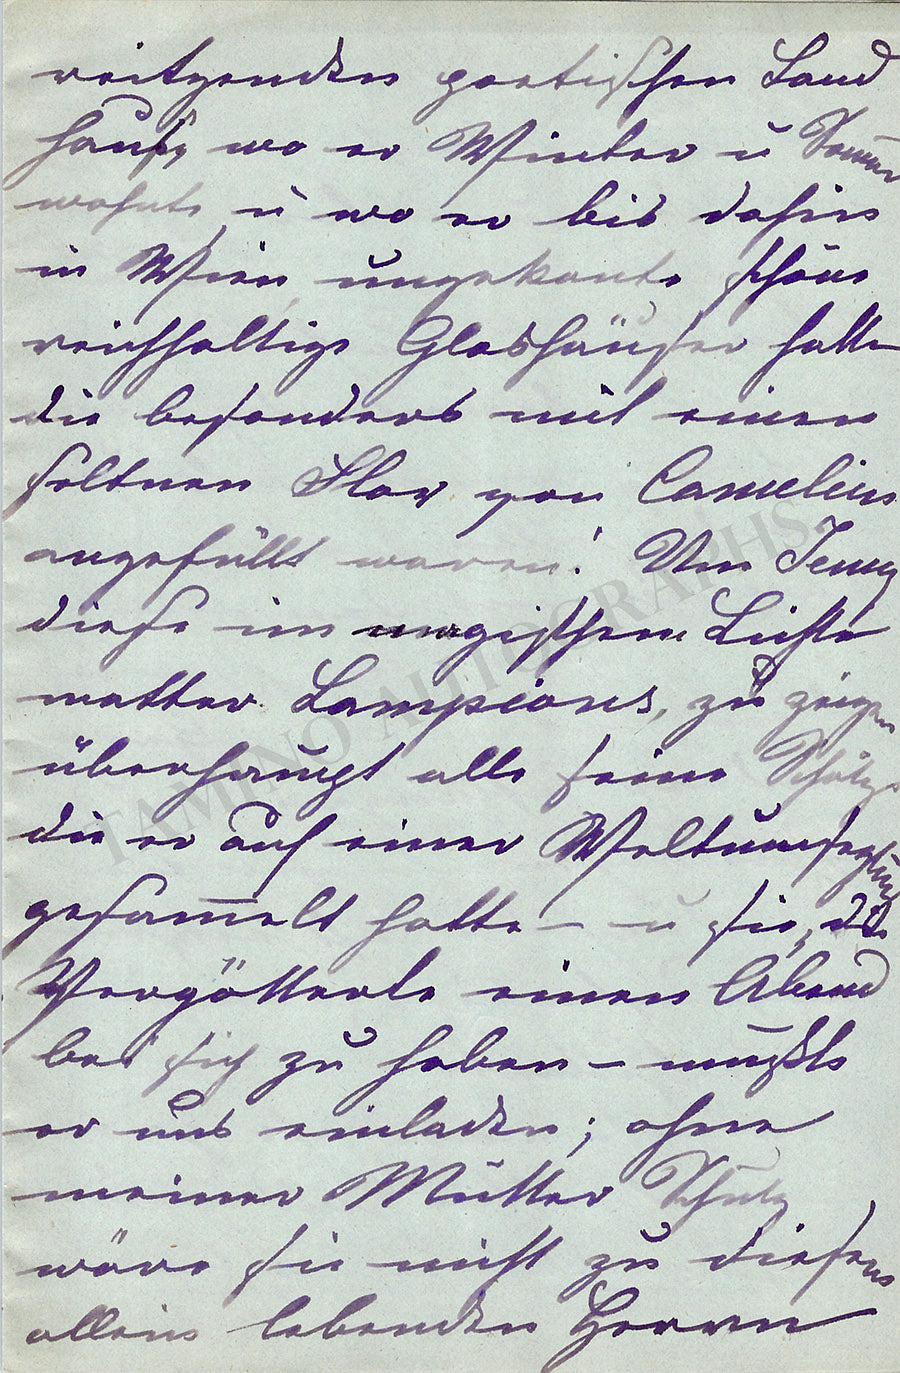 reitzenden poetischen Land
hause, wo er Winter u Somer
wohnte, u wo er bis dahin
in Wien ungekante schöne
reichhaltige Glashäuser hatte
die besonders mit einen
seltnen Flor von Camelien
angefüllt waren! Um Jenny
diese im magischem Lichte
matter Lampions, zu zeigen
überhaupt alle seine Schätze
die er auf einer Weltumseglung
gesammelt hatte – u sie, die
Vergötterte einen Abend
bei sich zu haben – mußte
er uns einladen; ohne
meiner Mutter Schutz
wäre sie nicht zu diesen
allein lebenden Herrn
TAMINO AUTOGRAPHS